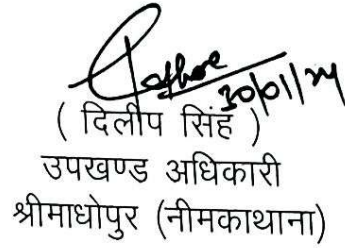 30/01/24
( दिलीप सिंह )
उपखण्ड अधिकारी
श्रीमाधोपुर (नीमकाथाना)